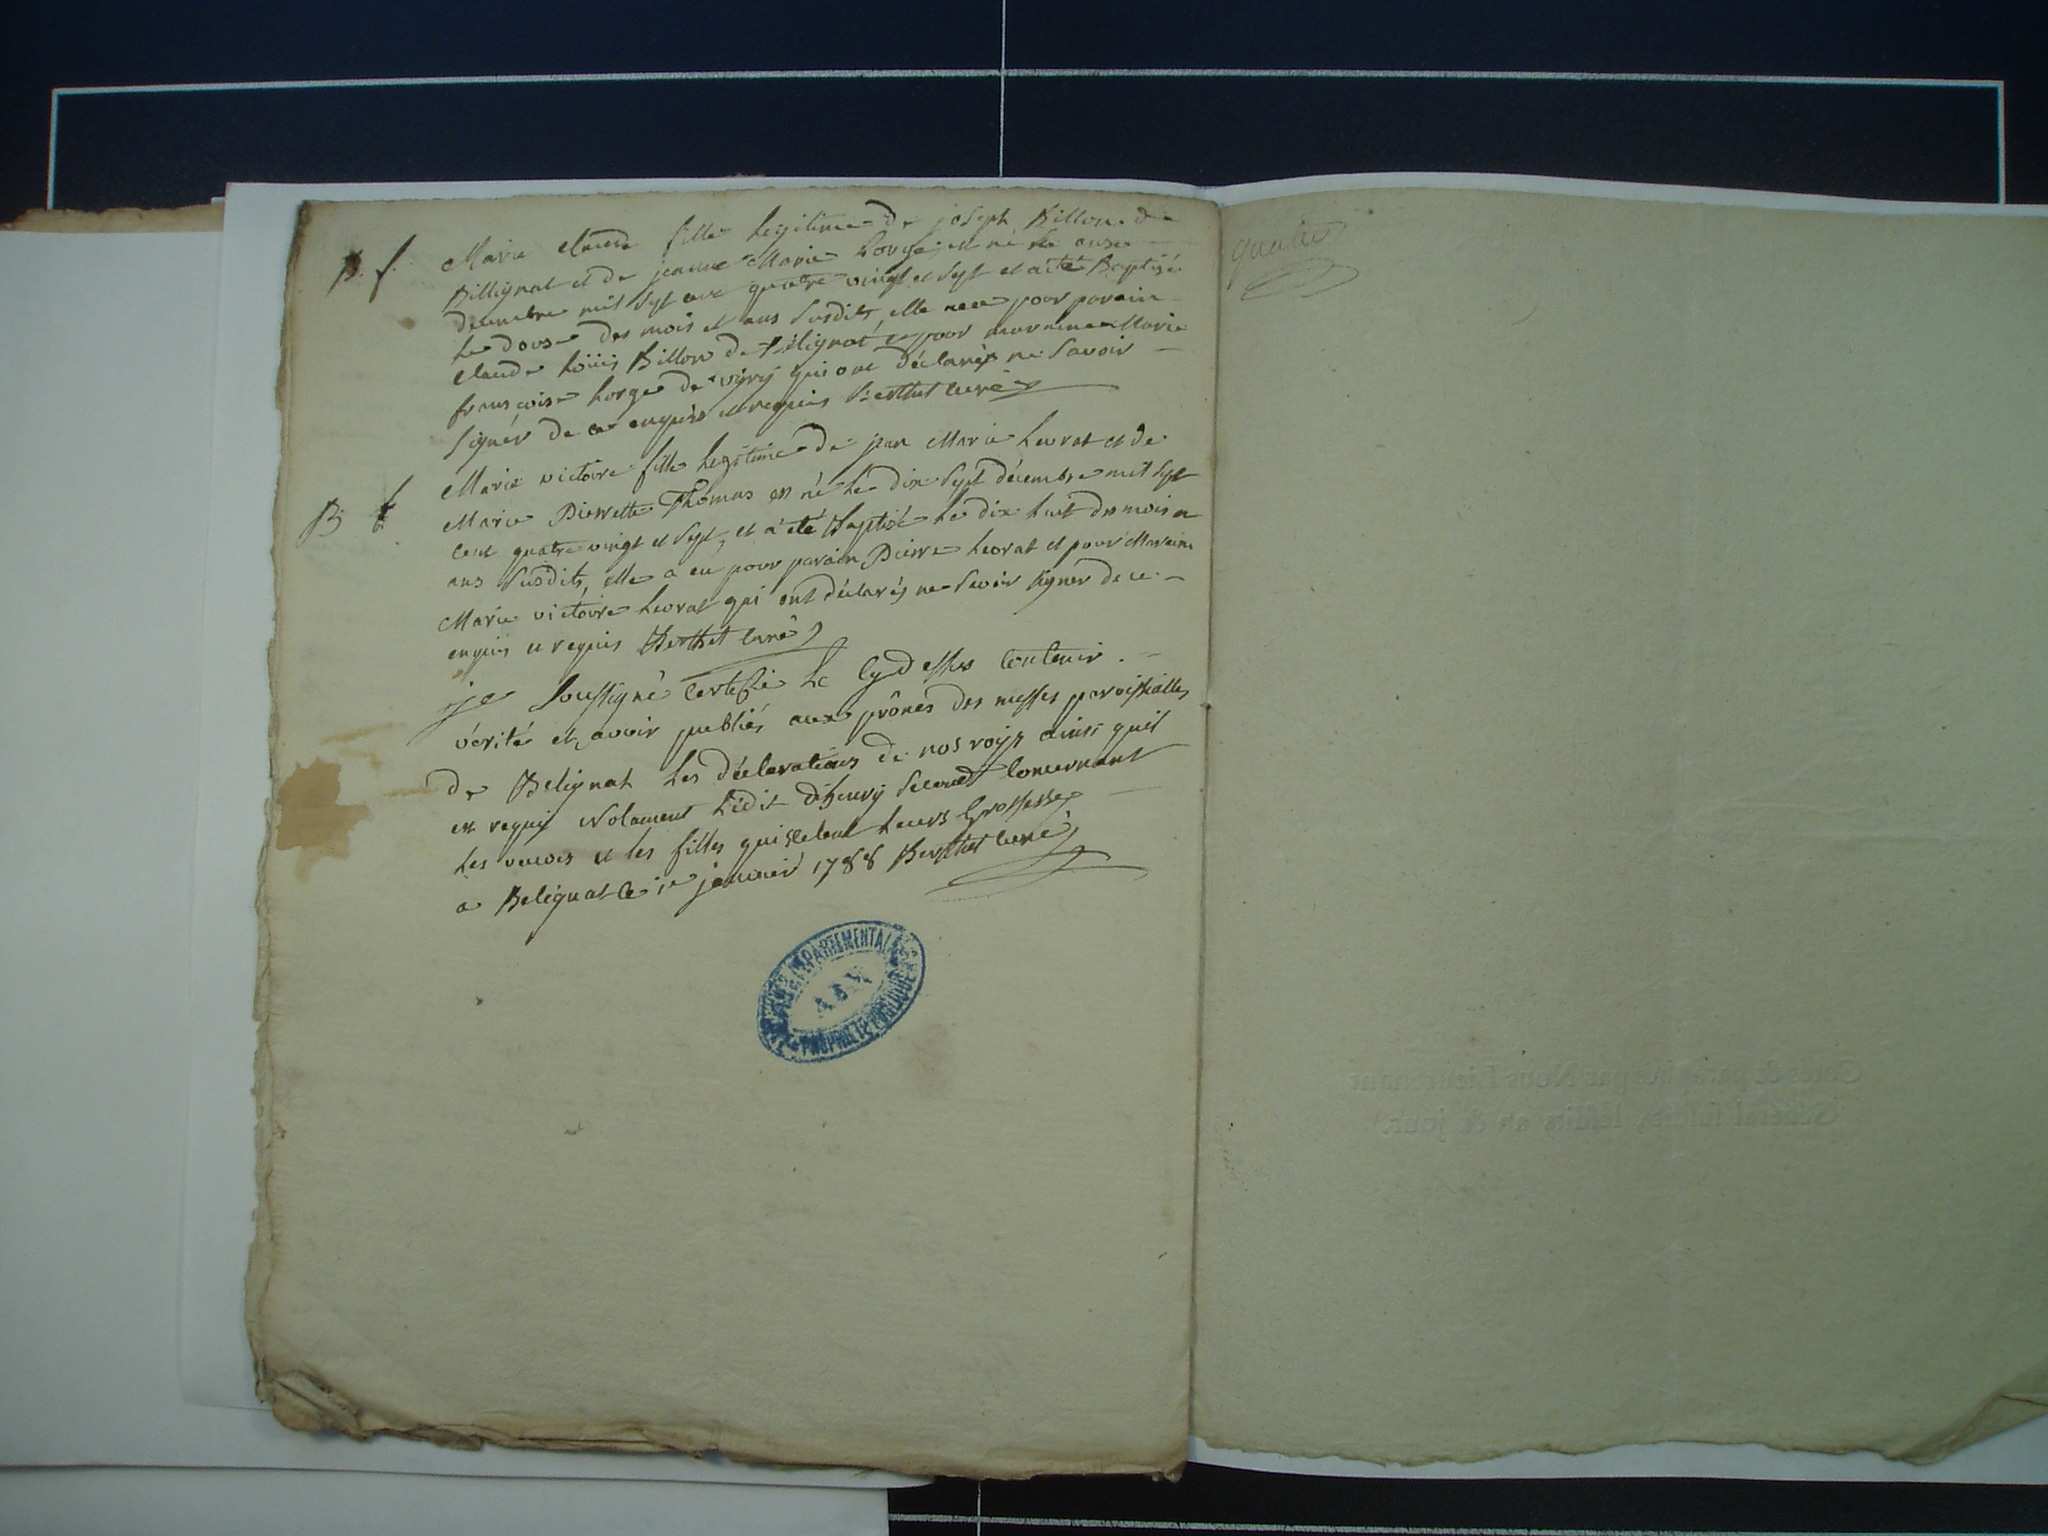 B. f. Marie claude fille legitime de joseph Billon de
Billignat et de jeanne Marie Lorge, est né le onze
decembre mil sept cent quatre vingt et sept et a été Baptisé
le douse des mois et ans susdits, elle a eu pour parain
claude Loüis Billon de Bilignat et pour maraine Marie
françoise Lorge de qui ont déclarés ne savoir
signér de ce enquis et requis Berthet curé
B f Marie victoire fille legitime de jean Marie Levrat et de
Marie Pierrette Thomas est né le dix sept décembre mil sept
cent quatre vingt et sept, et a été Baptisé le dix huit des mois et
ans susdits, elle a eu pour parain Pierre Levrat et pour Maraine
Marie victoire Levrat qui ont déclarés ne savoir signér de ce
enquis et requis Berthet curé
je soussigné certifié le cydessus contenir
vérité et avoir publiés aux prônes des messes paroissialles
de Belignat les déclarations de nos roys ainsi quil
est requis notament l'édit d'henry second concernant
les veuves et les filles qui scelent leurs Grossesse
a Belignat le 1e janvier 1788 Berthet curé
DEPARTEMENTALES
AIN
PROPRIÉTÉ PUBLIQUE
quatre
Cotés & paraphés par Nous Lieutenant
Général susdit, lesdits an & jour.